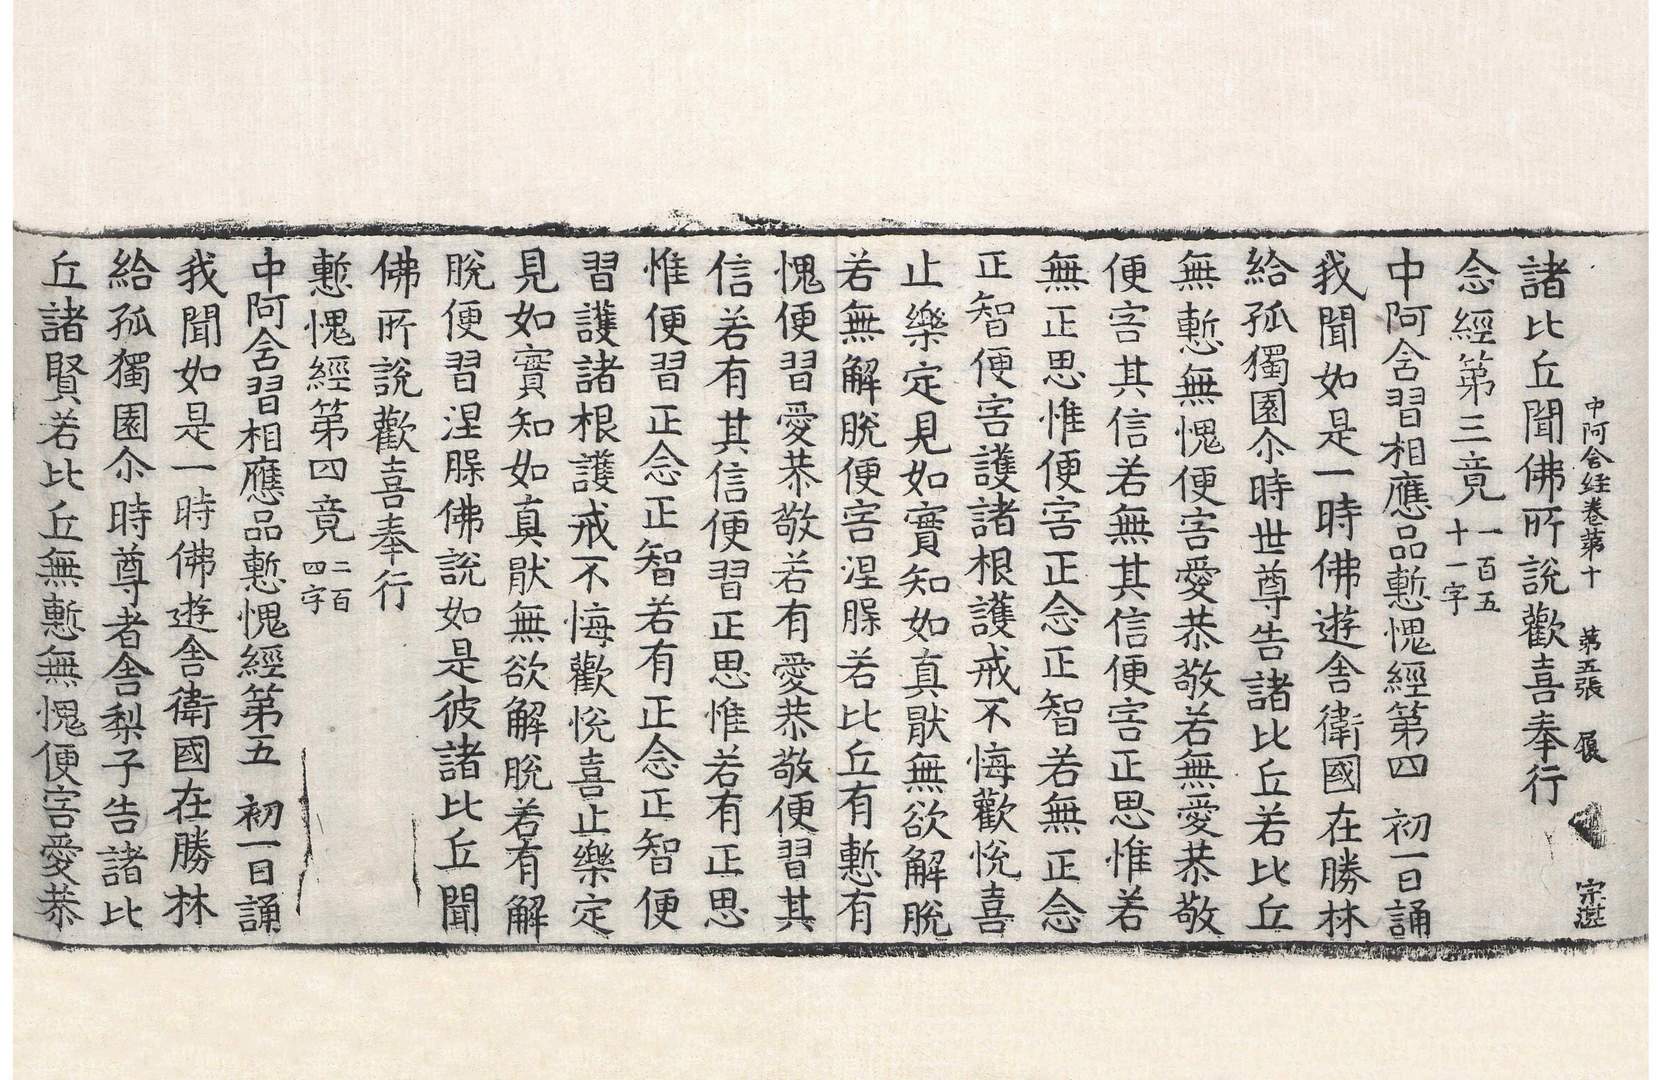 中阿含経卷第十　第五張　㞡　宗湛
諸比丘聞佛所說歡喜奉行
念經第三竟一百五十一字
中阿含習相應品慙愧經第四　初一日誦
我聞如是一時佛遊舍衛國在勝林
給孤獨園尒時世尊告諸比丘若比丘
無慙無愧便害愛恭敬若無愛恭敬
便害其信若無其信便害正思惟若
無正思惟便害正念正智若無正念
正智便害護諸根護戒不悔歡悅喜
止樂定見如實知如真猒無欲解脫
若無解脫便害涅槃若比丘有慙有
愧便習愛恭敬若有愛恭敬便習其
信若有其信便習正思惟若有正思
惟便習正念正智若有正念正智便
習護諸根護戒不悔歡悅喜止樂定
見如實知如真猒無欲解脫若有解
脫便習涅槃佛說如是彼諸比丘聞
佛所說歡喜奉行
慙愧經第四竟二百四字
中阿含習相應品慙愧經第五　初一日誦
我聞如是一時佛遊舍衛國在勝林
給孤獨園尒時尊者舍梨子告諸比
丘諸賢若比丘無慙無愧便害愛恭